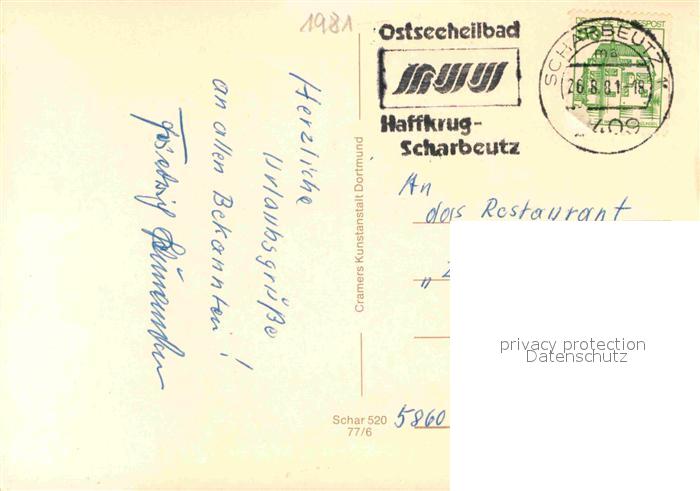 1981
Ostseeheilbad
Haffkrug-
Scharbeutz
SCHARBEUTZ 1
ma
26.8.81-18
2409
Herzliche
Urlaubsgrüße
an allen Bekannten!
Cramers Kunstanstalt Dortmund
Schar 520
77/6
An
das Restaurant
5860
privacy protection
Datenschutz